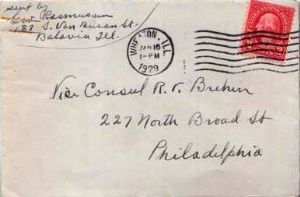 sent by
Geo. Rasmussen
S. Van Buren St.
Batavia Ill.
WHEATON, ILL.
JAN 16
1-PM
1929
Vice Consul R. T. Brehin
227 North Broad St
Philadelphia